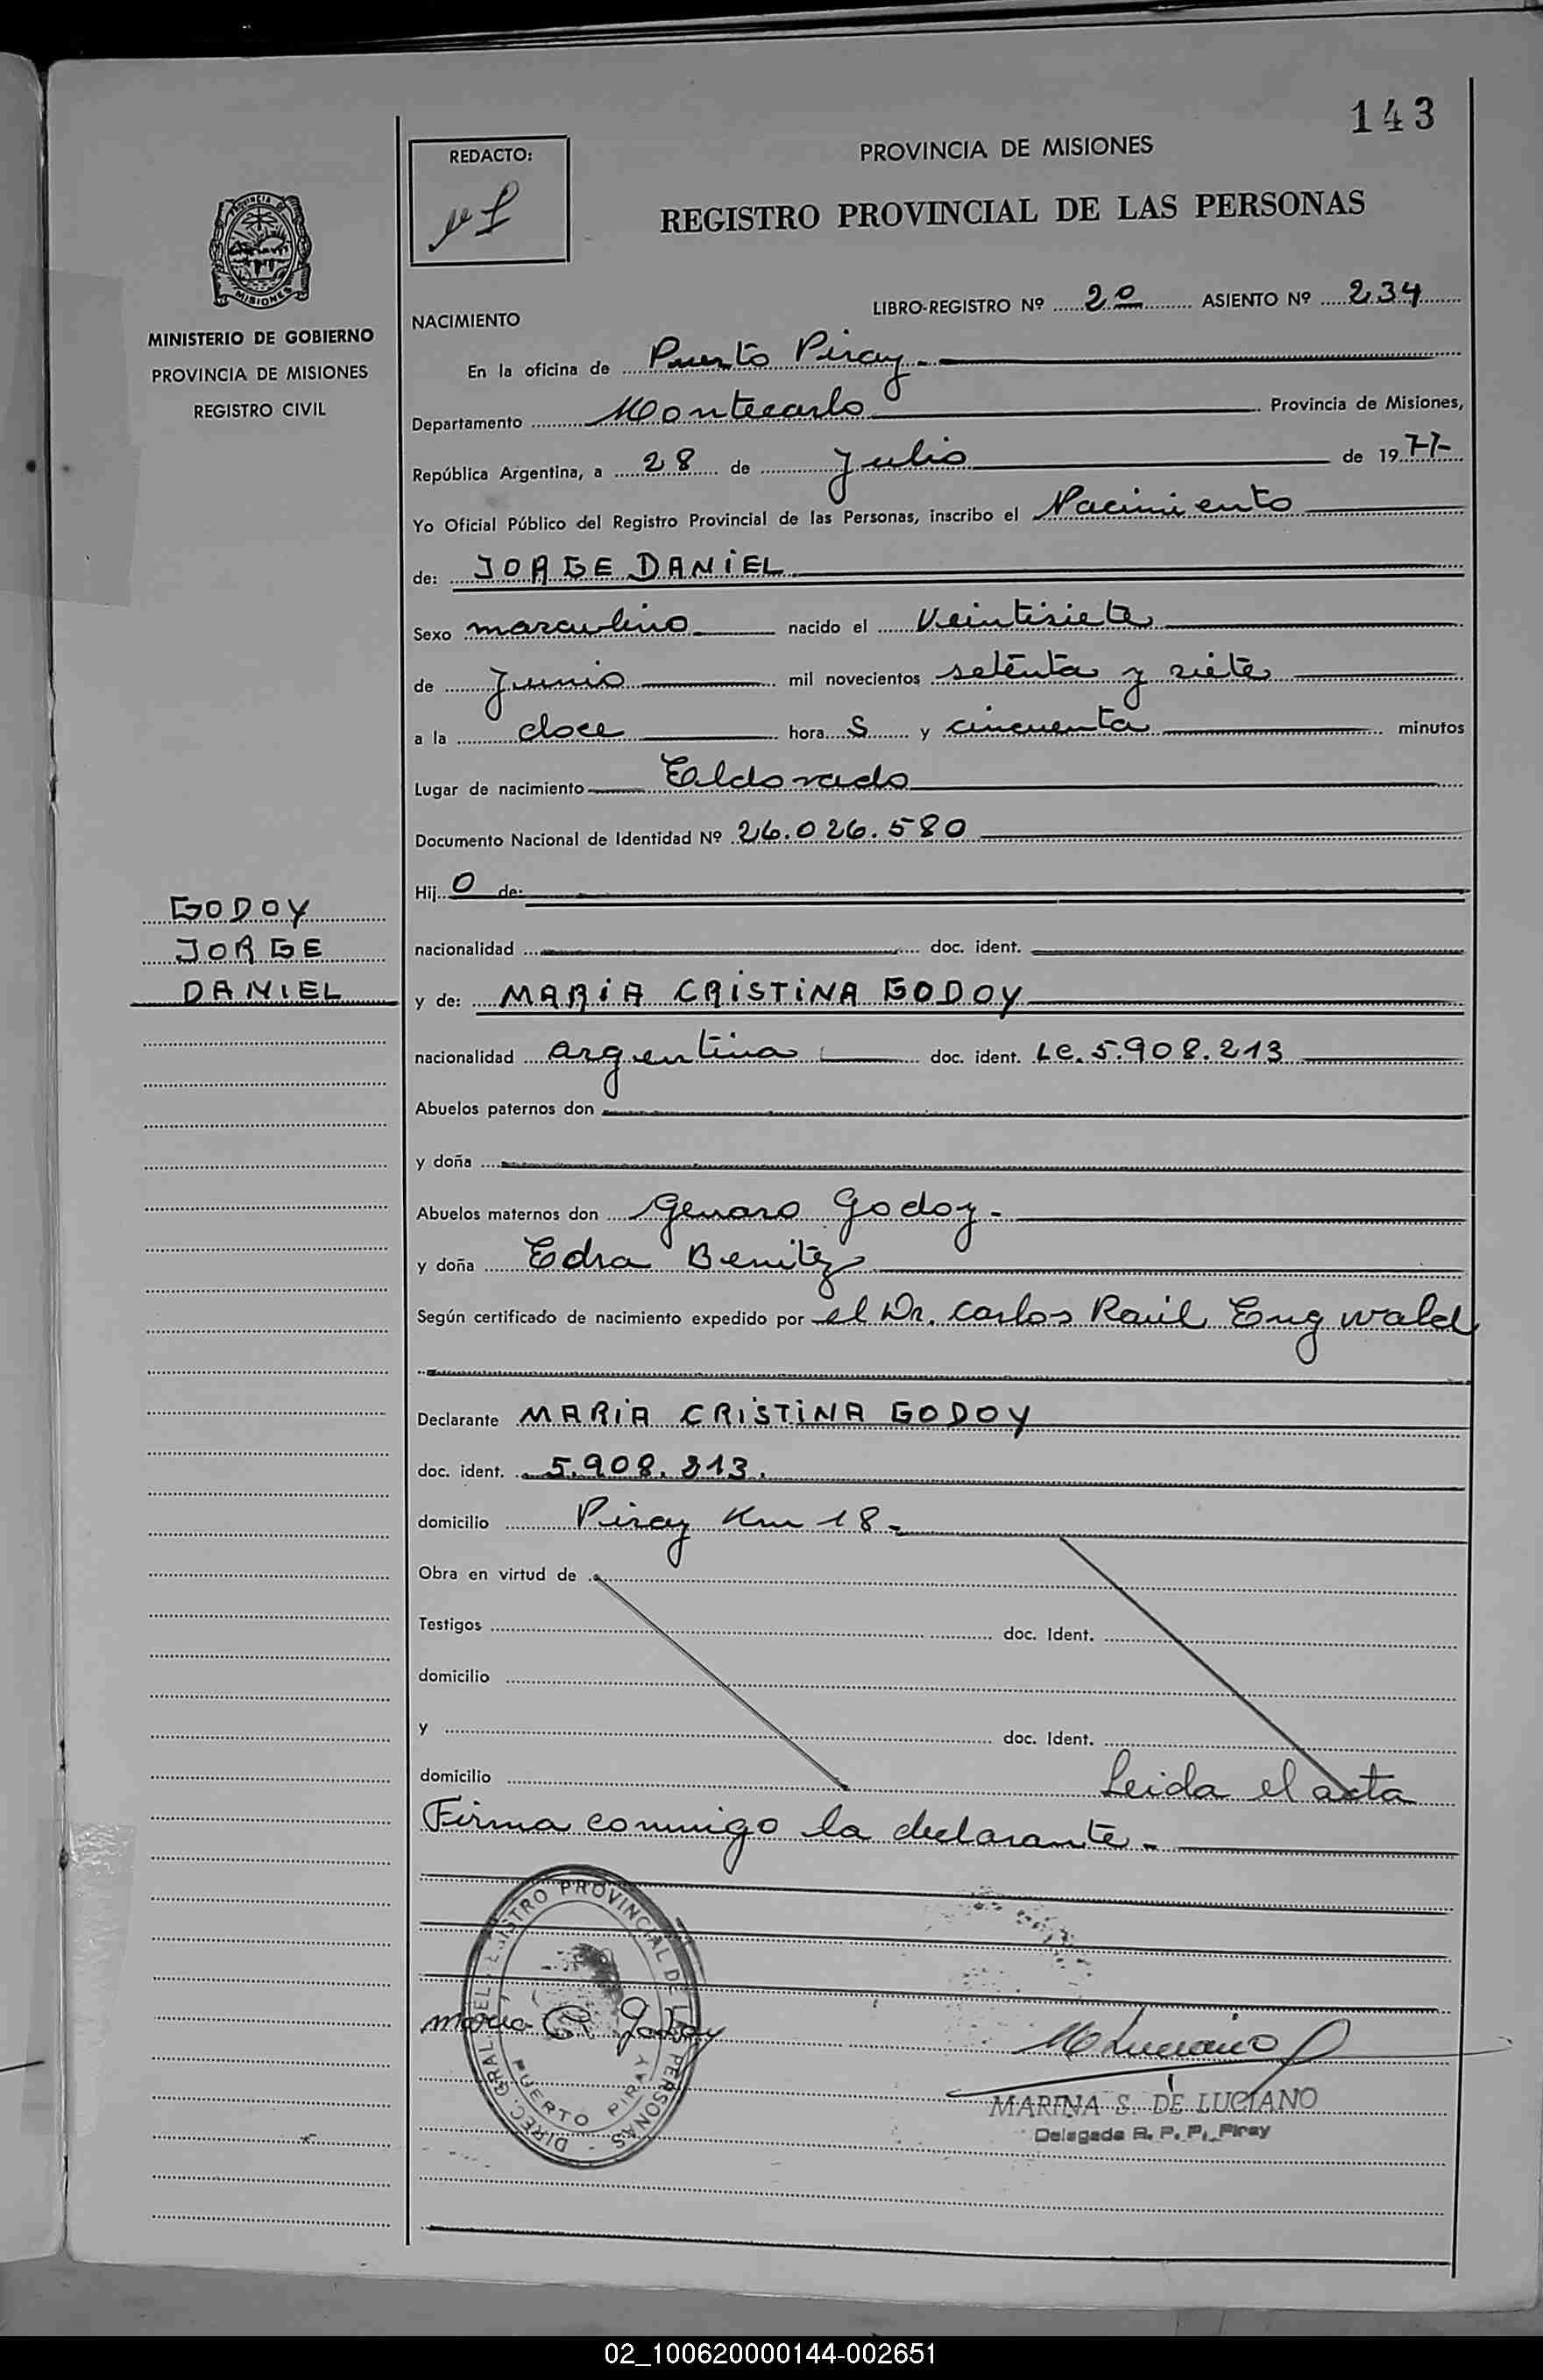 143
REDACTO:
PROVINCIA DE MISIONES
REGISTRO PROVINCIAL DE LAS PERSONAS
PROVINCIA DE
MISIONES
MINISTERIO DE GOBIERNO
PROVINCIA DE MISIONES
REGISTRO CIVIL
LIBRO-REGISTRO Nº 2º ASIENTO Nº 234
NACIMIENTO
En la oficina de Puerto Piray.
Departamento Montecarlo Provincia de Misiones,
República Argentina, a 28 de Julio de 1977
Yo Oficial Público del Registro Provincial de las Personas, inscribo el Nacimiento
de: JORGE DANIEL
Sexo masculino nacido el Veintisiete
de Junio mil novecientos setenta y siete
a la doce hora s y cincuenta minutos
Lugar de nacimiento Eldorado
Documento Nacional de Identidad Nº 26.026.580
Hij o de:
GODOY
JORGE
DANIEL
nacionalidad doc. ident.
y de: MARIA CRISTINA GODOY
nacionalidad argentina doc. ident. LC. 5.908.213
Abuelos paternos don
y doña
Abuelos maternos don Genaro Godoy.-
y doña Edra Benitez
Según certificado de nacimiento expedido por el Dr. Carlos Raúl Engwald
Declarante MARIA CRISTINA GODOY
doc. ident. 5.908.213.
domicilio Piray Km 18.-
Obra en virtud de
Testigos doc. Ident.
domicilio
y doc. Ident.
domicilio Leida el acta
Firma conmigo la declarante.-
DIREC. GRAL. DEL REGISTRO PROVINCIAL DE LAS PERSONAS -
PUERTO PIRAY
Maria C. Godoy
M Luciano
MARINA S. DE LUCIANO
Delegada R. P. P. Piray
02_100620000144-002651